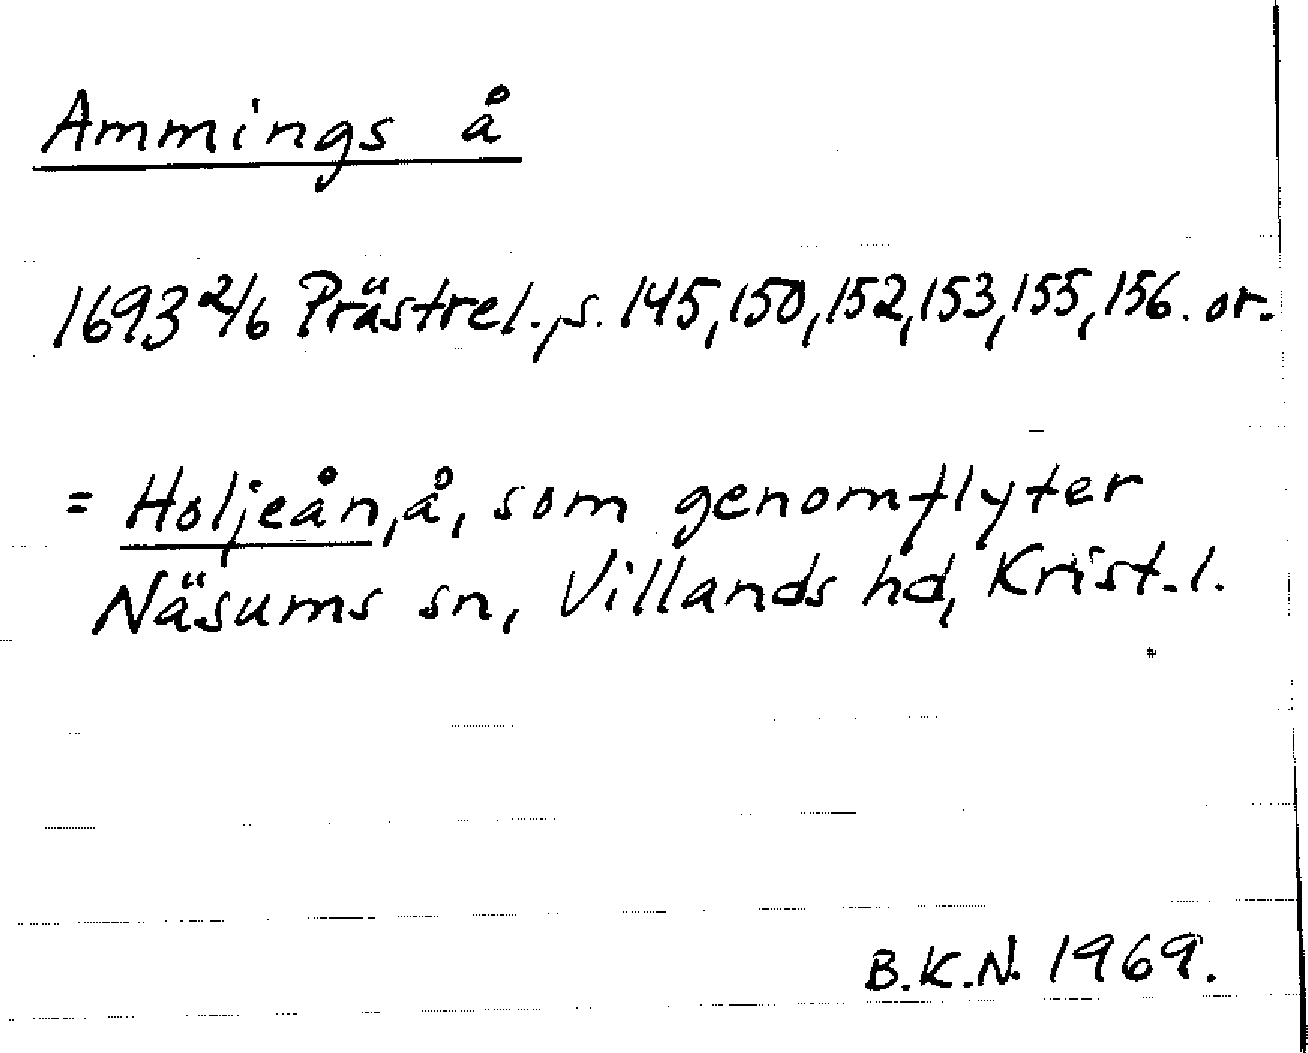 Ammings å
1693 2/6 Prästrel. s. 145, 150, 152, 153, 155, 156. or.
= Holjeån, å, som genomflyter
Näsums sn, Villands hd, Krist. l.
B.K.N. 1969.